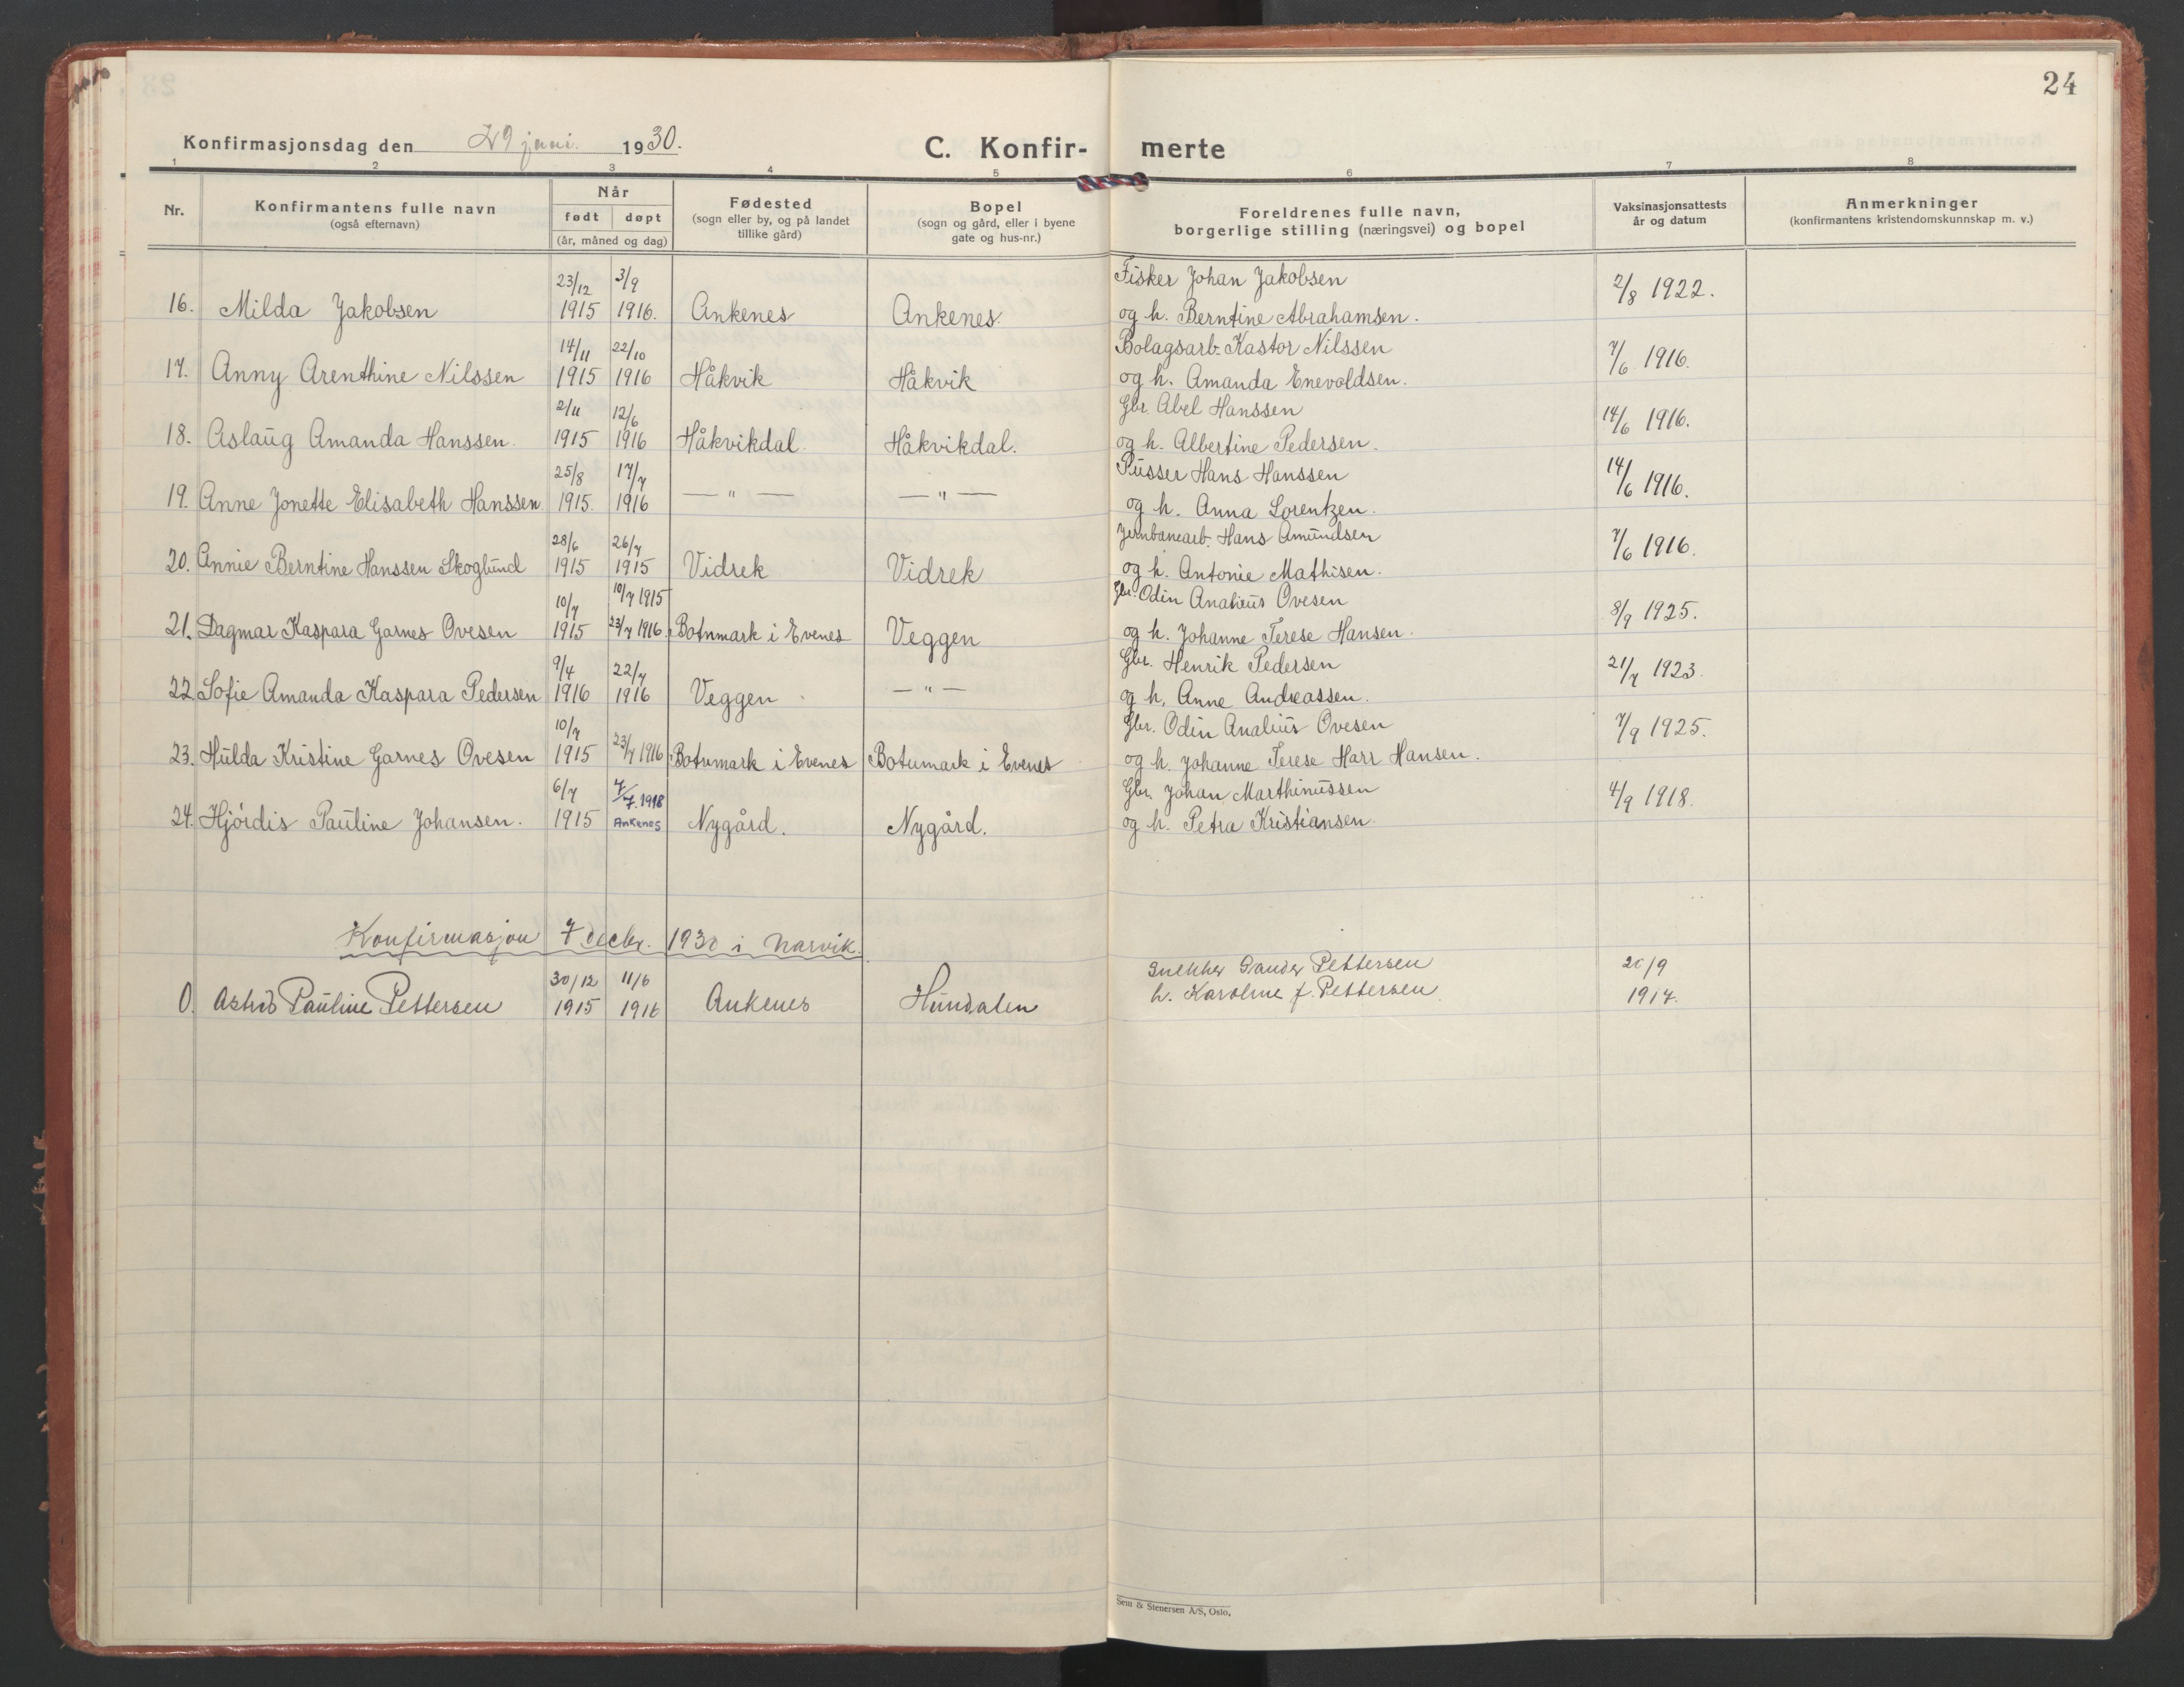 24
Konfirmasjonsdag den 29 juni. 1930.
C. Konfir- merte
1 2 3 4 5 6 7 8
Nr.
Konfirmantens fulle navn
(også efternavn)
Når
født døpt
(år, måned og dag)
Fødested
(sogn eller by, og på landet
tillike gård)
Bopel
(sogn og gård, eller i byene
gate og hus-nr.)
Foreldrenes fulle navn,
borgerlige stilling (næringsvei) og bopel
Vaksinasjonsattests
år og datum
Anmerkninger
(konfirmantens kristendomskunnskap m. v.)
23/12 3/9 Fisker Johan Jakobsen 2/8 1922.
16. Milda Jakobsen 1915 1916. Ankenes Ankenes. og h. Berntine Abrahamsen.
14/11 22/10 Bolagsarb. Kastor Nilssen 7/6 1916.
17. Anny Arenthine Nilssen 1915 1916 Håkvik Håkvik og h. Amanda Enevoldsen.
2/11 12/6 Gbr. Abel Hanssen 14/6 1916.
18. Aslaug Amanda Hanssen. 1915 1916 Håkvikdal. Håkvikdal. og h. Albertine Pedersen.
25/8 17/7 Pusser Hans Hanssen 14/6 1916.
19. Anne Jonette Elisabeth Hanssen 1915. 1916 — " — — " — og h. Anna Lorentzen.
28/6 26/7 Jernbanearb. Hans Amundsen 7/6 1916.
20. Annie Berntine Hanssen Skoglund 1915 1915 Vidrek Vidrek og h. Antonie Mathisen.
10/7 10/7 1915 Gbr. Odin Analius Ovesen 8/9 1925.
21. Dagmar Kaspara Garnes Ovesen 1915 23/7 1916 Botnmark i Evenes Veggen og h. Johanne Terese Hansen.
9/4 22/7 Gbr. Henrik Pedersen 21/7 1923.
22. Sofie Amanda Kaspara Pedersen 1916 1916 Veggen — " — og h. Anne Andreassen.
10/7 Gbr. Odin Analius Ovesen 7/9 1925.
23. Hulda Kristine Garnes Ovesen 1915 23/7 1916 Botnmark i Evenes Botnmark i Evenes og h. Johanne Terese Harr Hansen.
6/7 7/7. 1918 Gbr. Johan Marthinussen 4/9 1918.
24. Hjördis Pauline Johansen. 1915 Ankenes Nygård. Nygård. og h. Petra Kristiansen.
Konfirmasjon 7 decbr. 1930 i Narvik.
30/12 11/6 Snekker Sander Pettersen 20/9
0. Astrid Pauline Pettersen 1915 1916 Ankenes Hundalen h. Karoline f. Pettersen. 1917.
Sem & Stenersen A/S, Oslo.